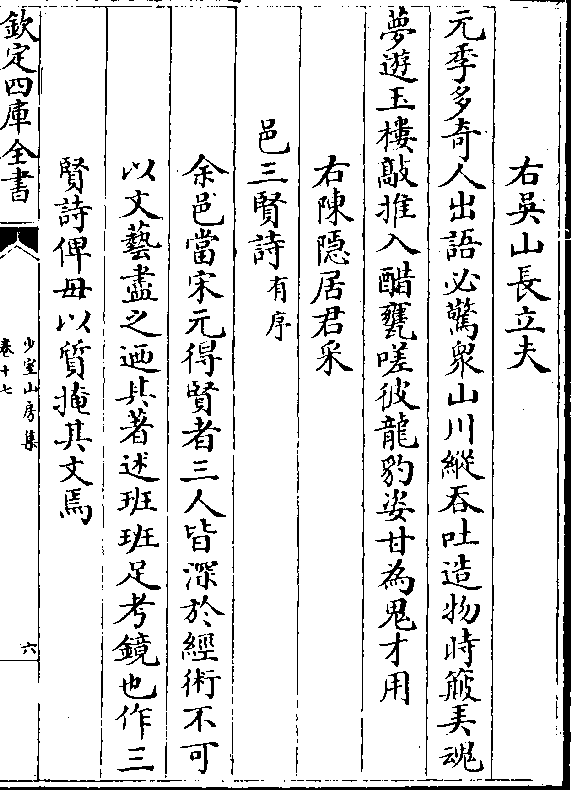 右吳山長立夫
元季多奇人出語必驚衆山川縱吞吐造物時簸弄魂
夢遊玉樓敲推入醋甕嗟彼龍豹姿甘為鬼才用
右陳隱居君采
邑三賢詩有序
余邑當宋元得賢者三人皆深於經術不可
以文藝盡之廼其著述班班足考鏡也作三
賢詩俾毋以質掩其文焉
欽定四庫全書
少室山房集
卷十七
六